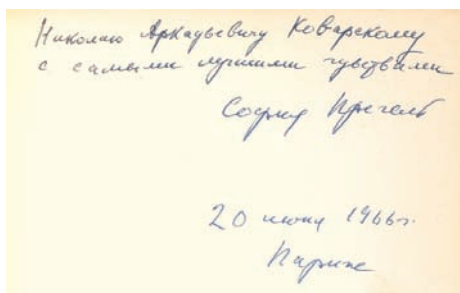 Николаю Аркадьевичу Коварскому
с самыми лучшими чувствами
София Прегель
20 июня 1966 г.
Париж